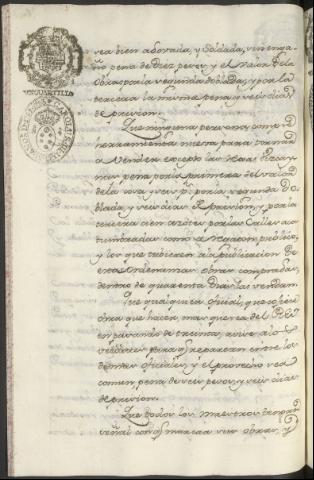 VNQVARTILLO
rea bien adorada, y soldada, sin enga-
ño pena de Diez pesos, y el Valor de la
Obra, por la segunda doblada, y por la
tercera la misma pena, y seis dias
de prision.
Que ninguna persona compre
herramienta nuestra para tornar
a Vender
mas pena por la primera del valor
de la cosa, y seis ps. por la segunda Do-
blada, y seis dias de Prision, y por la
tercera cien azotes por las Calles aco-
stumbradas como a Regaton publico,
y los que tubieren a la publicacion de
estas Ordenanzas obras compradas,
dentro de quarenta Dias las vendan.
Que qualquiera Oficial, que no sea
que hacia, mas que sea del
en pasando de treinta, avise a los
Vedores para q. se repartan entre los
demas Oficiales, y el provecho sea
comun, pena de seis pesos, y seis dias
de prision.
Que todos los Maestros tengan
señal con q. marcar sus obras, y